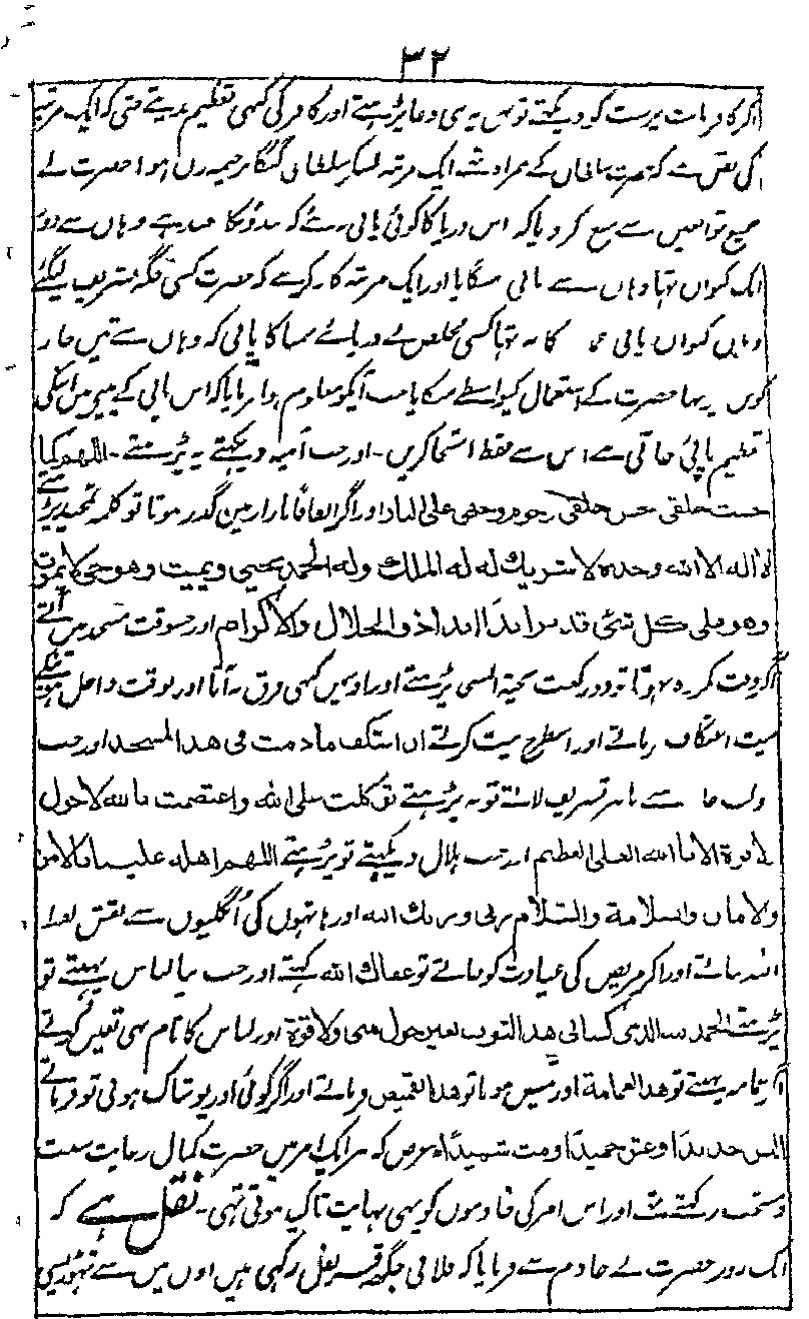 ۳۲
اگر کافر بت پرست کو دیکھتے تو بس یہ ہی دعا پڑھتے اور کافر کی کبھی تعظیم نہ دیتے حتی کہ ایک مرتبہ
کی نقل ہے کہ حضرت کے ہمراہ ایک مرتبہ گنگا پر خیمہ زن ہوا حضرت نے
جمیع توابعین سے منع کر دیا کہ اس دریا کا کوئی پانی نہ پئے کہ ہندؤں کا معبد ہے وہاں سے دور
ایک کنواں تھا وہاں سے پانی منگایا اور ایک مرتبہ کا ذکر ہے کہ حضرت کسی جگہ تشریف لیگئے
وہاں کنواں پانی کا نہ تھا کسی مخلص نے دریائے جمنا کا پانی کہ وہاں سے تین چار
کوس پر تھا حضرت کے استعمال کیواسطے منگایا جب آپکو معلوم ہوا فرمایا کہ اس پانی کے پینے میں اسکی
تعظیم پائی جاتی ہے اس سے فقط استنجا کریں ۔ اور جب آئینہ دیکھتے یہ پڑھتے ۔ اللهم كما
حسنت خلقی حسن خلقی وحرم وجهی علی النار اور اگر اتفاقا بازار میں گذر ہوتا تو کلمہ تمجید پڑھتے
لا اله الا الله وحده لا شريك له له الملك وله الحمد يحيى ويميت وهو حي لا يموت
وهو على كل شئ قدير ابدا ابدا ذو الجلال والاكرام اور جسوقت مسجد میں آتے
اگر وقت مکروہ نہ ہوتا تو دو رکعت تحیۃ المسجد پڑھتے اور اس میں کبھی فرق نہ آتا اور بوقت داخل ہونیکے
نیت اعتکاف فرماتے اور اسطرح نیت کرتے ان اعتكف ما دمت فى هذا المسجد اور جب
سے باہر تشریف لاتے تو یہ پڑھتے توكلت على الله واعتصمت بالله لا حول
لا قوة الا بالله العلى العظيم اور جب ہلال دیکھتے تو پڑھتے اللهم اهله علينا بالامن
والامان والسلامة والسلام ربى وربك الله اور ہاتھوں کی اُنگلیوں سے نقش لفظ
الله بناتے اور اگر مریض کی عیادت کو جاتے تو عفاك الله کہتے اور جب نیا لباس پہنتے تو
پڑھتے الحمد لله الذى كسانى هذا الثوب بغير حول منى ولا قوة اور لباس کا نام بھی تعین کرتے
اگر عمامہ پہنتے تو هذا العمامة اور قمیص ہوتا تو هذا القميص فرماتے اور اگر کوئی اور پوشاک ہوتی تو فرماتے
البس جديدا وعش حميدا ومت شهيدا غرض کہ ہر ایک امر میں حضرت کمال رعایت سنت
و مستحب رکھتے تھے اور اس امر کی خادموں کو بھی نہایت تاکید ہوتی تھی ۔ نقل ہے کہ
ایک روز حضرت نے خادم سے فرمایا کہ فلانی جگہ قرنفل رکھی ہیں اون میں سے تھوڑیسی